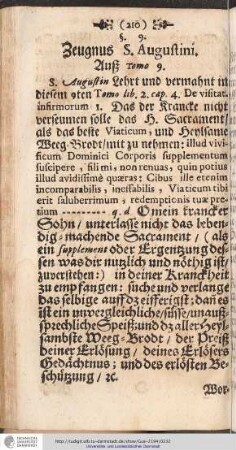 (210)
§. 9.
Zeugnus S. Augustini.
Auß Tomo 9.
S. Augustin Lehrt und vermahnt in
diesem 9ten Tomo lib. 2. cap. 4. De visitat.
infirmorum 1. Das der Krancke nicht
verseumen solle das H. Sacrament/
als das beste Viaticum, und Heylsame
Weeg-Brodt/mit zu nehmen: illud vivi-
ficum Dominici Corporis supplementum
suscipere, si li mi, non renuas, quin potius
illud avidissimè quæras: Cibus ille etenim
incomparabilis, ineffabilis, Viaticum tibi
erit saluberrimum, redemptionis tuæ pre-
tium ---------- q. d O mein krancker
Sohn/ unterlasse nicht das leben-
dig-machende Sacrament/ (als
ein supplement oder Ergentzung des-
sen was dir nutzlich und nöthig ist/
zuverstehen:) in deiner Kranckheit
zu empfangen: suche und verlange
das selbige auff dz eiferigst; dañ es
ist ein unvergleichliche/süsse/unauß-
sprechliche Speiß; und dz aller Heyl-
sambste Weeg-Brodt/ der Preiß
deiner Erlösung/ deines Erlösers
Gedächtnus; und des erlösten Be-
schützung/ ꝛc.
Wor-
http://tudigit.ulb.tu-darmstadt.de/show/Gue-2194/0232
Universitäts- und Landesbibliothek Darmstadt